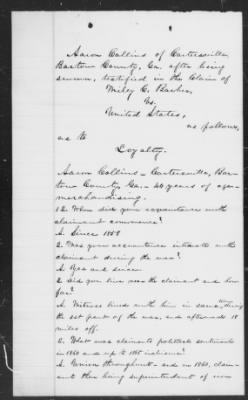 Aaron Collins of Cartersville
Bartow County, Ga. after being
sworn, testified in the Claim of
Wiley C. Barber,
vs.
United States,
as follows,
as to
Loyalty.
Aaron Collins - Cartersville, Bar-
tow County, Ga. - 40 years of age -
merchandising.
Q. When did your acquaintance with
claimant commence?
A. Since 1858
2. Was your acquaintance intimate with
claimant during the war?
A. Yes and since.
2 Did you live near the claimant and how
far?
A. Witness lived with him in same during
the 1st part of the war, and afterwards 18
miles off.
Q. What was claimants political sentiments
in 1860 and up to 1865 inclusive?
A. Union throughout - and in 1860, claim-
ant then being superintendent of